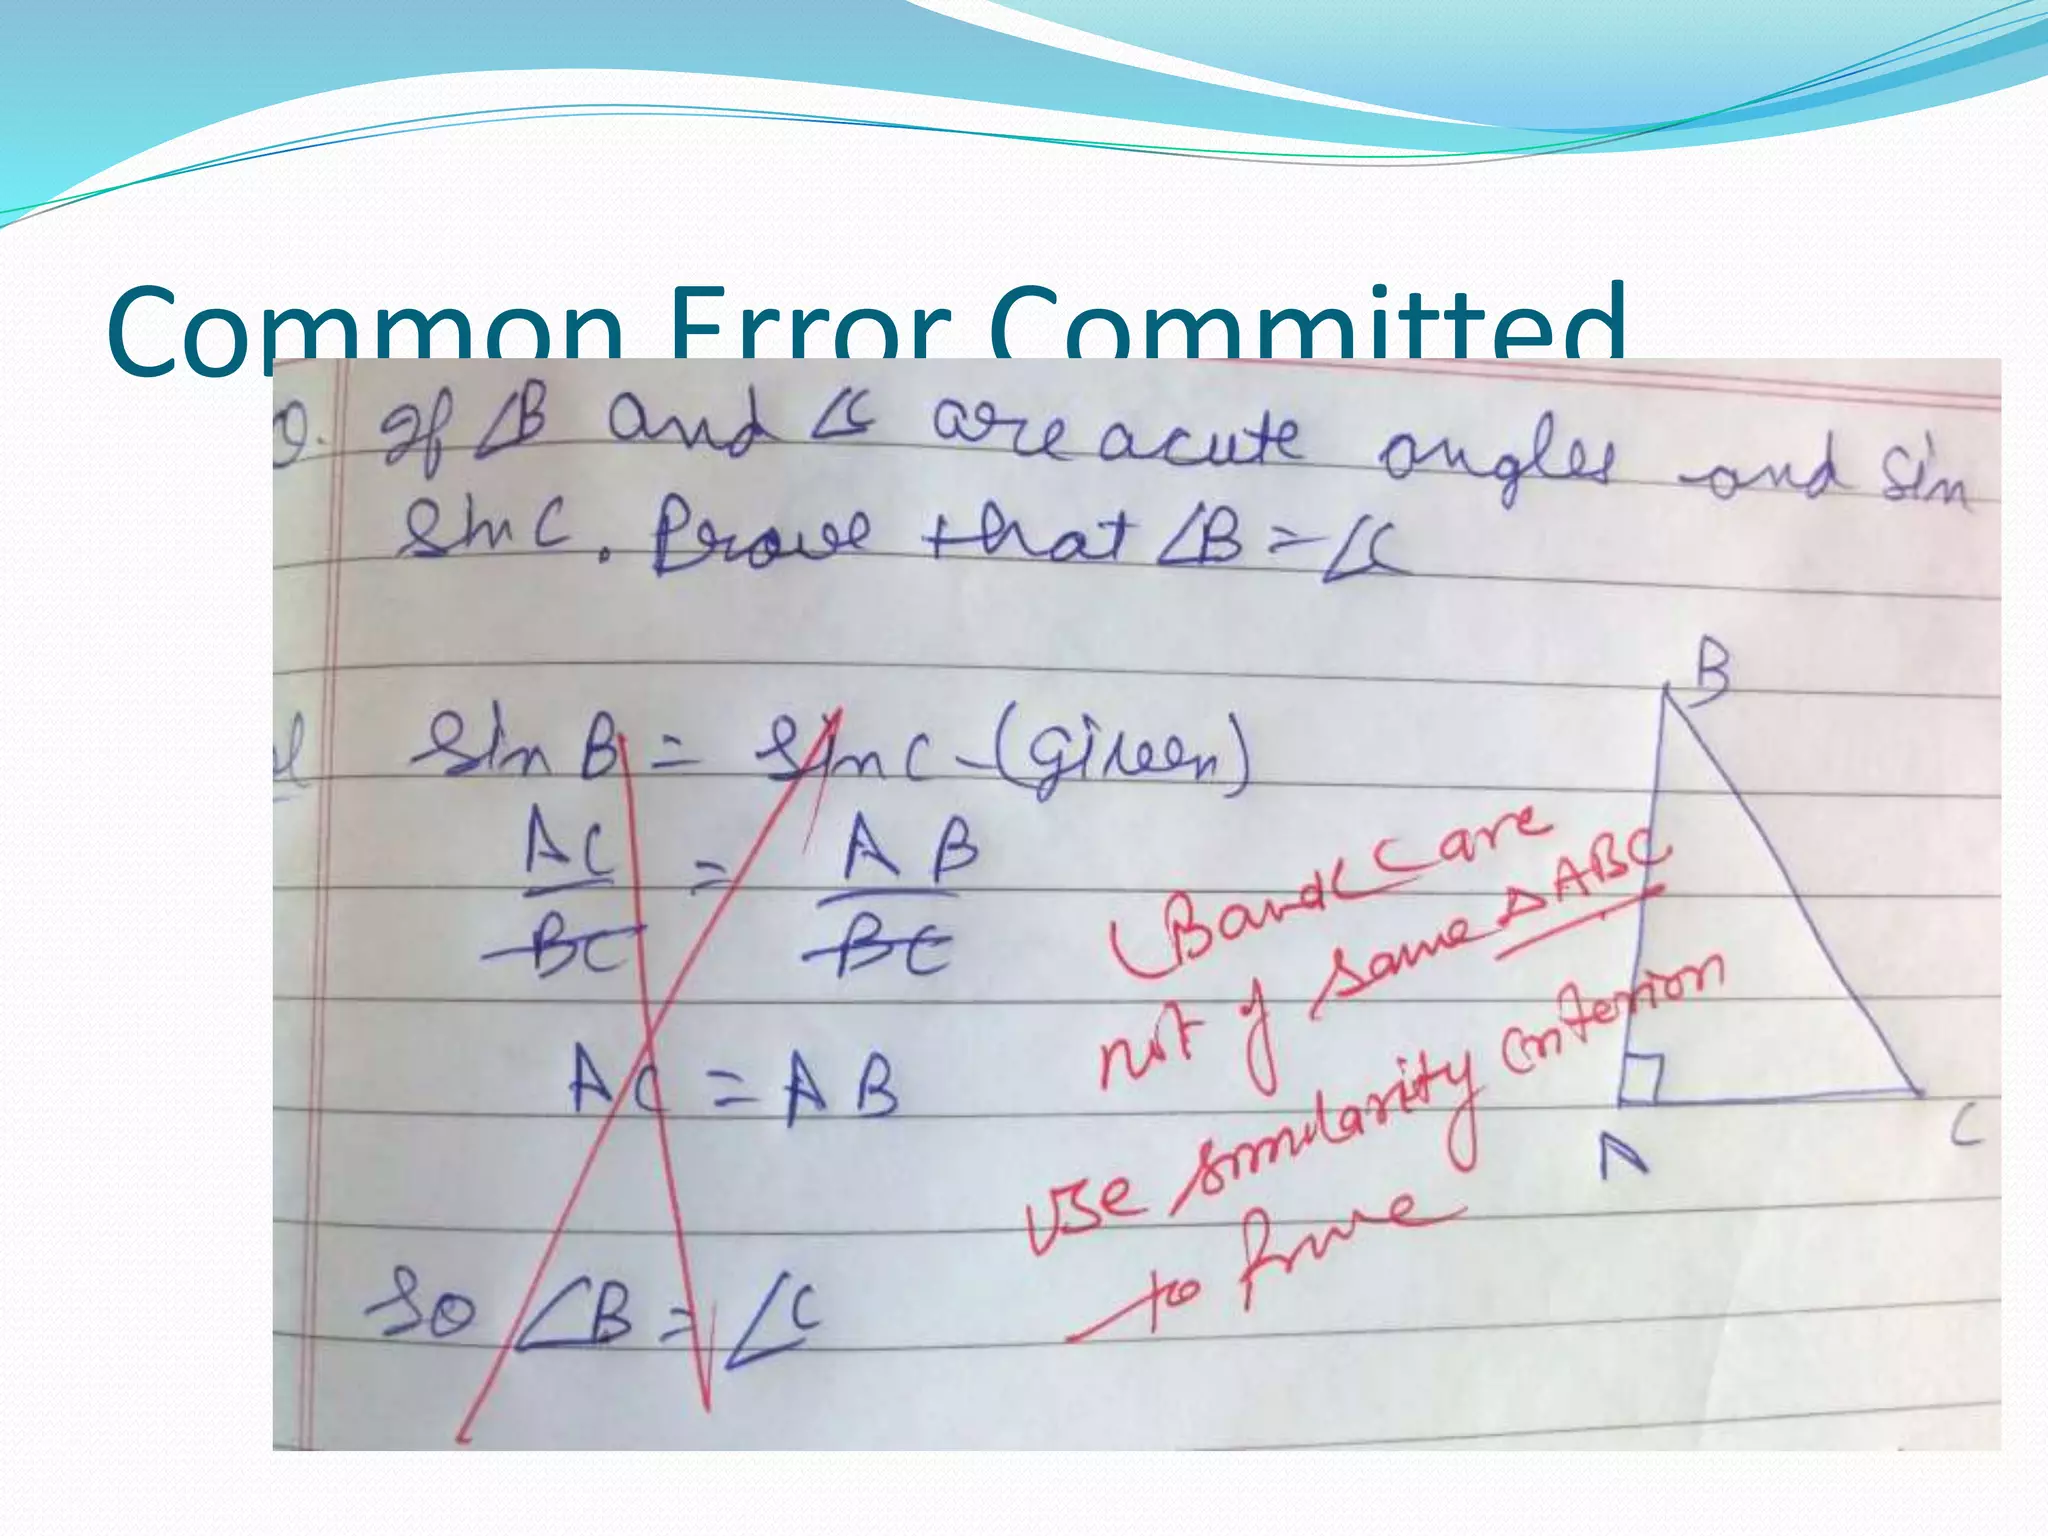 Common Error Committed
Q. If ∠B and ∠C are acute angles and Sin
Sin C. Prove that ∠B = ∠C
Sin B = Sin C - (Given)
AC/BC = AB/BC
AC = AB
So ∠B = ∠C
∠B and ∠C are
not of same △ABC
use similarity criterion
to prove
B
A
C